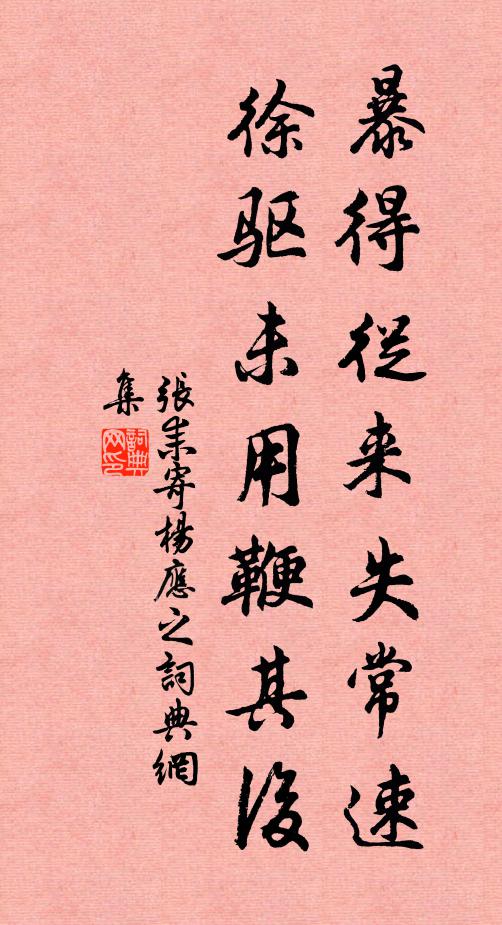 暴得從来失常速
徐驱未用鞭其後
張耒寄楊應之詞典網
集
詞典网印